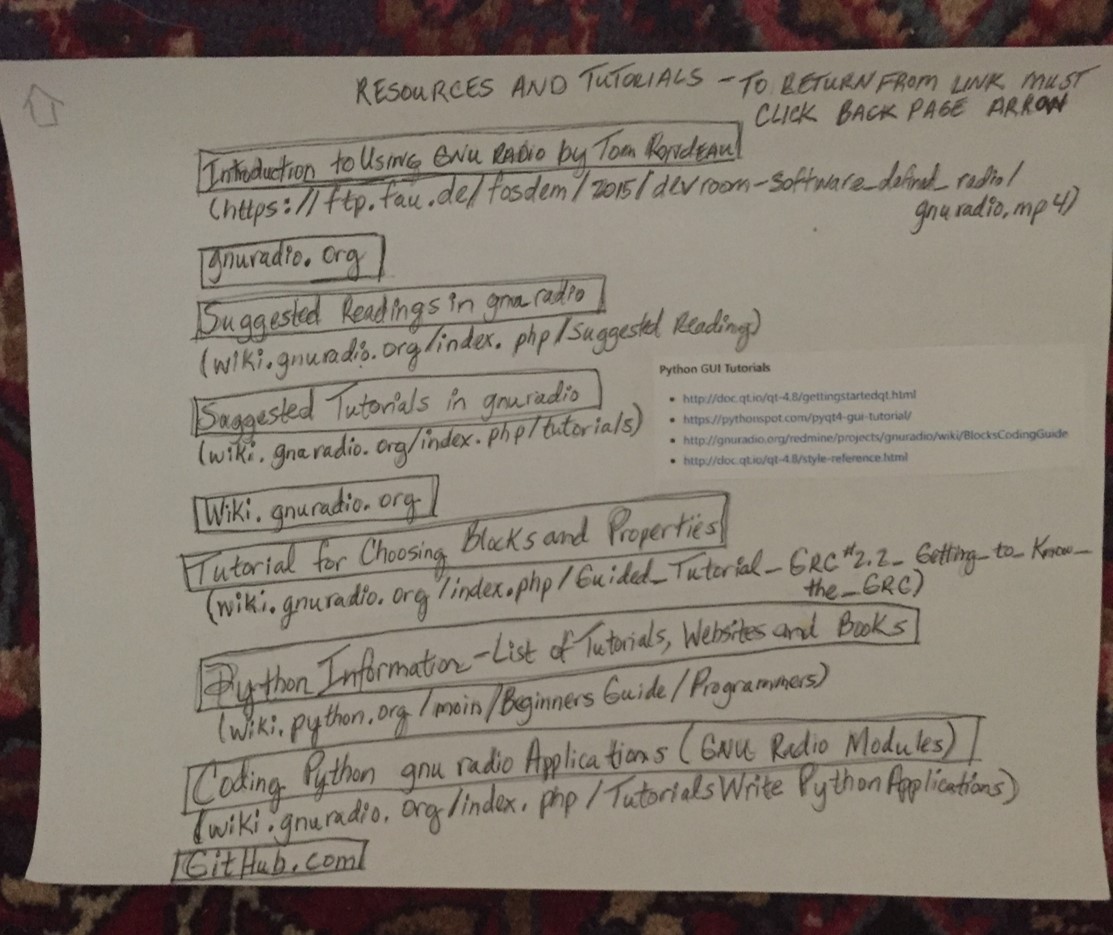 RESOURCES AND TUTORIALS - TO RETURN FROM LINK MUST
CLICK BACK PAGE ARROW
Introduction to Using GNU RADIO by Tom RONDEAU
(https://ftp.fau.de/fosdem/2015/devroom-software_defined_radio/
gnuradio.mp4)
gnuradio.org
Suggested Readings in gnuradio
(wiki.gnuradio.org/index.php/Suggested Reading)
Suggested Tutorials in gnuradio
(wiki.gnuradio.org/index.php/tutorials)
Python GUI Tutorials
• http://doc.qt.io/qt-4.8/gettingstartedqt.html
• https://pythonspot.com/pyqt4-gui-tutorial/
• http://gnuradio.org/redmine/projects/gnuradio/wiki/BlocksCodingGuide
• http://doc.qt.io/qt-4.8/style-reference.html
Wiki.gnuradio.org
Tutorial for Choosing Blocks and Properties
(wiki.gnuradio.org/index.php/Guided_Tutorial_GRC#2.2_Getting_to_Know_
the_GRC)
Python Information - List of Tutorials, Websites and Books
(wiki.python.org/moin/Beginners Guide/Programmers)
Coding Python gnu radio Applications (GNU Radio Modules)
(wiki.gnuradio.org/index.php/TutorialsWrite Python Applications)
GitHub.com